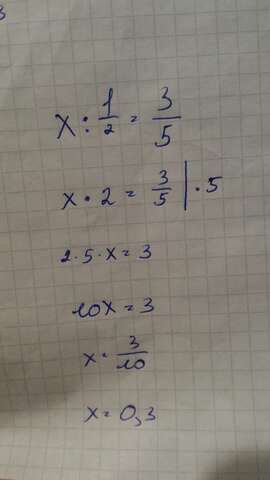 x : 1/2 = 3/5
x · 2 = 3/5 | · 5
2 · 5 · x = 3
10x = 3
x = 3/10
x = 0,3